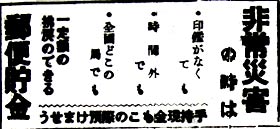 非常災害
の時は
・印鑑がなく
ても
・時間外
でも
・全國どこの
局でも
一定額の
拂戻のできる
郵便貯金
手持現金もこの際預けませう